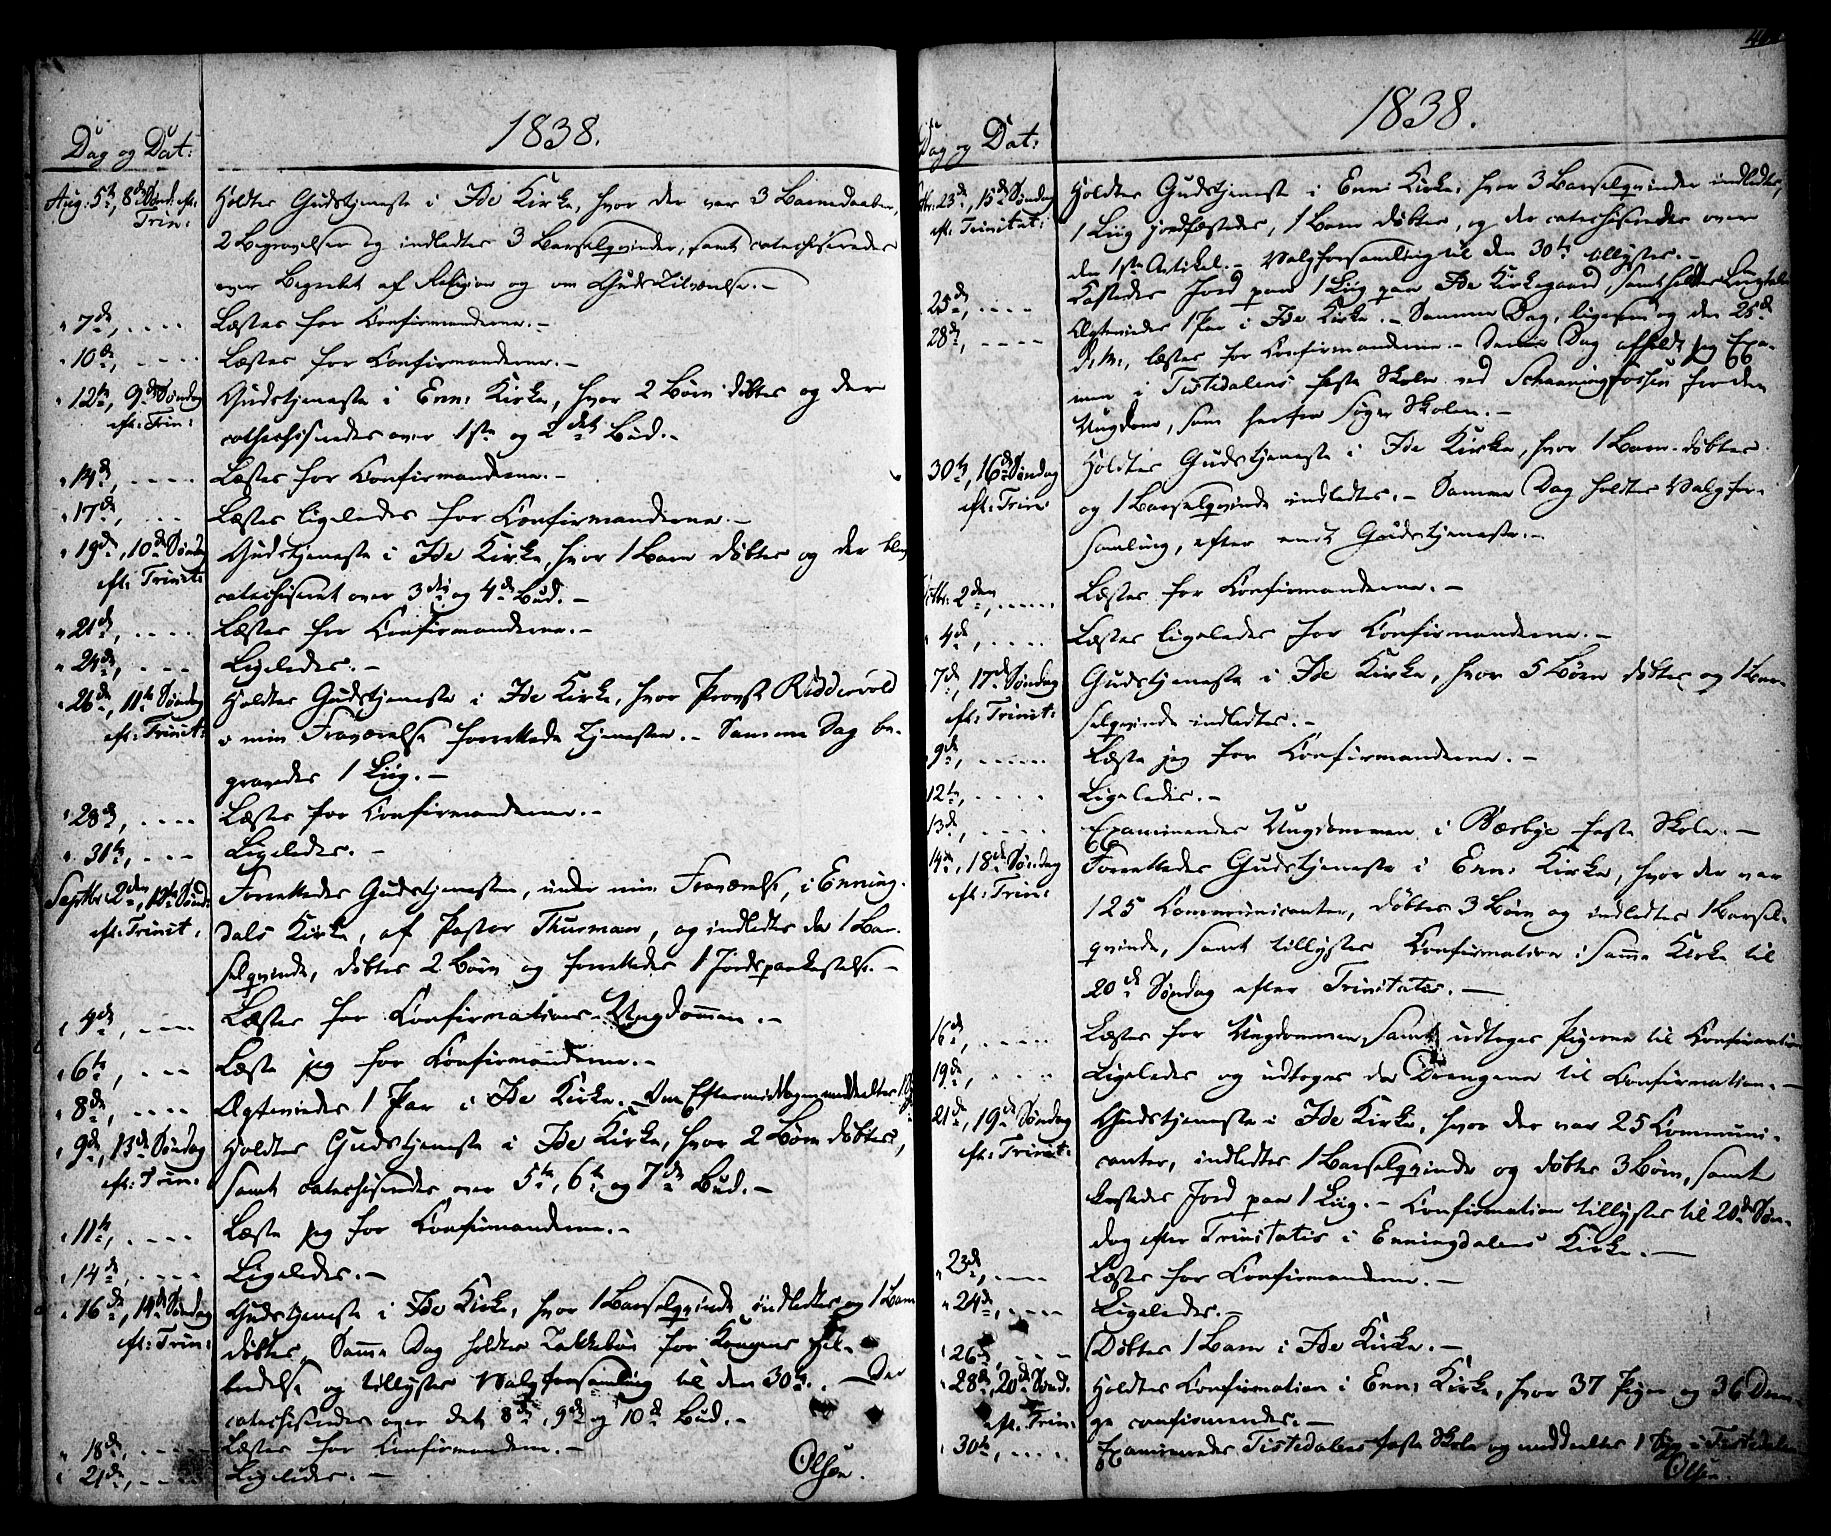 1838.
Dag og Dat:
Aug. 5te, 8de Sønd. eft. Trin: Holdtes Gudstjeneste i Ide Kirke, hvor der var 3 Barnedaaber,
2 Begravelser og indledtes 3 Barselqvinder, samt catechiseredes
over Begrebet af Religion og om Guds Tilværelse.-
" 7de, .... Læstes for Confirmanderne.-
" 10de, .... Læstes for Confirmanderne.-
" 12te, 9de Søndag eft: Trin: Gudstjeneste i Enn: Kirke, hvor 2 Børn døbtes og der
catechiseredes over 1ste og 2det Bud.-
" 14de, .... Læstes for Confirmanderne.-
" 17de, .... Læstes ligeledes for Confirmanderne.-
" 19de, 10de Søndag eft: Trinit: Gudstjeneste i Ide Kirke, hvor 1 Barn døbtes og der blev
catechiseret over 3die og 4de Bud.-
" 21de, .... Læstes for Confirmanderne.-
" 24de, .... Ligeledes.-
" 26de, 11te Søndag eft: Trinit: Holdtes Gudstjeneste i Ide Kirke, hvor Provst Riddervold
i min Fraværelse forrettede Tjenesten.- Samme Dag be-
gravedes 1 Liig.-
" 28de, .... Læstes for Confirmanderne.-
" 31te, .... Ligeledes.-
Septbr 2den, 12te Sønd: eft. Trinit. Forrettedes Gudstjenesten, under min Fraværelse, i Enning-
dals Kirke, af Pastor Thurman, og indledtes da 1 Bar-
selqvinde, døbtes 2 Børn og forrettedes 1 Jordspaakastelse.-
" 4de, .... Læstes for Confirmations-Ungdommen.-
" 6te, .... Læste jeg for Confirmanderne.-
" 8de, .... Ægteviedes 1 Par i Ide Kirke.- Om Eftermiddagen meddeeltes 1
" 9de, 13de Søndag eft: Trin: Holdtes Gudstjeneste i Ide Kirke, hvor 2 Børn døbtes,
samt catechiseredes over 5te, 6te og 7de Bud.-
" 11te, .... Læste jeg for Confirmanderne.-
" 14de, .... Ligeledes.-
" 16de, 14de Søndag eft: Trin: Gudstjeneste i Ide Kirke, hvor 1 Barselqvinde indledtes og 1 Barn
døbtes. Samme Dag holdtes Takkebøn for Kongens Hel-
bredelse og tillystes Valgforsamling til den 30te.- Der
catechiseredes over det 8de, 9de og 10de Bud.-
" 18de, .... Læstes for Confirmanderne.-
" 21de, .... Ligeledes.-
Olsen.
1838.
Dag og Dat:
23de, 15de Søndag eft. Trinitat: Holdtes Gudstjeneste i Enn: Kirke, hvor 3 Barselqvinder indledtes,
1 Liig jordfæstedes, 1 Barn døbtes, og der catechiseredes over
den 1ste Artikel.- Valgforsamling til den 30te tillystes.-
25de, .... Kastedes Jord paa 1 Liig paa Ide Kirkegaard, samt holdtes Liigtale
28de, .... Ægteviedes 1 Par i Ide Kirke.- Samme Dag, ligesom og den 25de
d: M:, læstes for Confirmanderne.- Denne Dag afholdt jeg Exa-
men i Tistedalens faste Skole ved Schaaningfossen for den
Ungdom, som herfra søger Skolen.-
30te, 16de Søndag eft: Trin: Holdtes Gudstjeneste i Ide Kirke, hvor 1 Barn døbtes
og 1 Barselqvinde indledtes.- Samme Dag holdtes Valgfor-
samling, efter endt Gudstjeneste.-
2den, .... Læstes for Confirmanderne.-
4de, .... Læstes ligeledes for Confirmanderne.-
7de, 17de Søndag eft: Trinit: Gudstjeneste i Ide Kirke, hvor 5 Børn døbtes og 1 Bar-
selqvinde indledtes.-
9de, .... Læste jeg for Confirmanderne.-
12te, .... Ligeledes.-
13de, .... Examineredes Ungdommen i Bærbye faste Skole.-
14de, 18de Søndag eft: Trin: Forrettedes Gudstjeneste i Enn: Kirke, hvor der var
125 Communicanter, døbtes 3 Børn og indledtes 1 Barsel-
qvinde, samt tillystes Confirmation i samme Kirke til
20de Søndag efter Trinitatis.-
16de, .... Læstes for Ungdommen samt udtoges Pigerne til Confirmation
19de, .... Ligeledes og udtoges da Drengene til Confirmation.-
21de, 19de Søndag eft: Trinit: Gudstjeneste i Ide Kirke, hvor der var 25 Communi-
canter, indledtes 1 Barselqvinde og døbtes 3 Børn, samt
kastedes Jord paa 1 Liig.- Confirmation tillystes til 20de Søn-
dag efter Trinitatis i Enningdalens Kirke.-
23de, .... Læstes for Confirmanderne.-
" 24de, .... Ligeledes.-
" 26de, .... Døbtes 1 Barn i Ide Kirke.-
" 28de, 20de Sønd. eft. Trin: Holdtes Confirmation i Enn: Kirke, hvor 37 Piger og 36 Dren-
ge confirmeredes.-
" 30te, .... Examineredes Tistedalens faste Skole og meddeeltes 1 Syg i Tistedalen
Olsen.